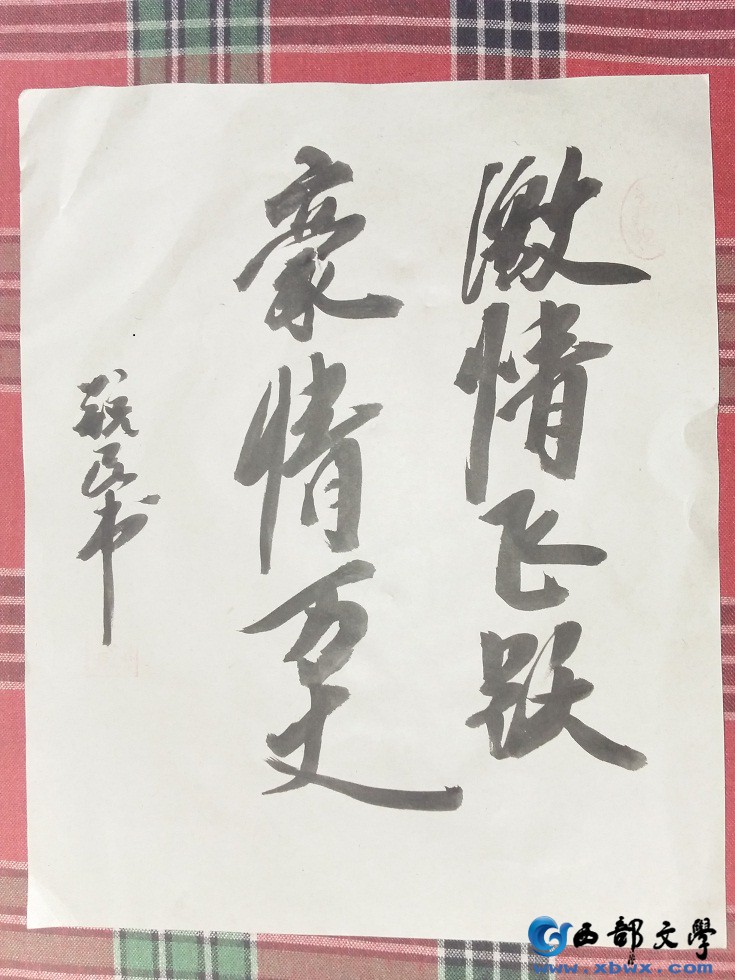 激情飞跃
豪情万丈
民书
西部文学
www.xbwx.com